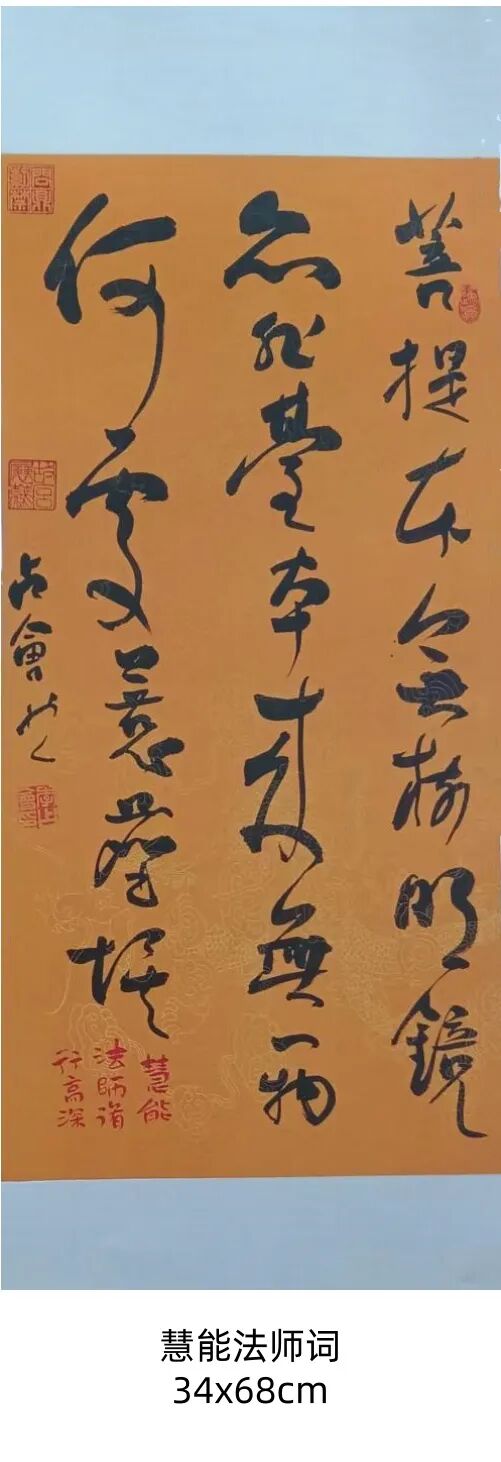 菩提本無樹明鏡
亦非臺本来無一物
何處惹塵埃
占會
慧能
法師道
行高深
慧能法师词
34x68cm